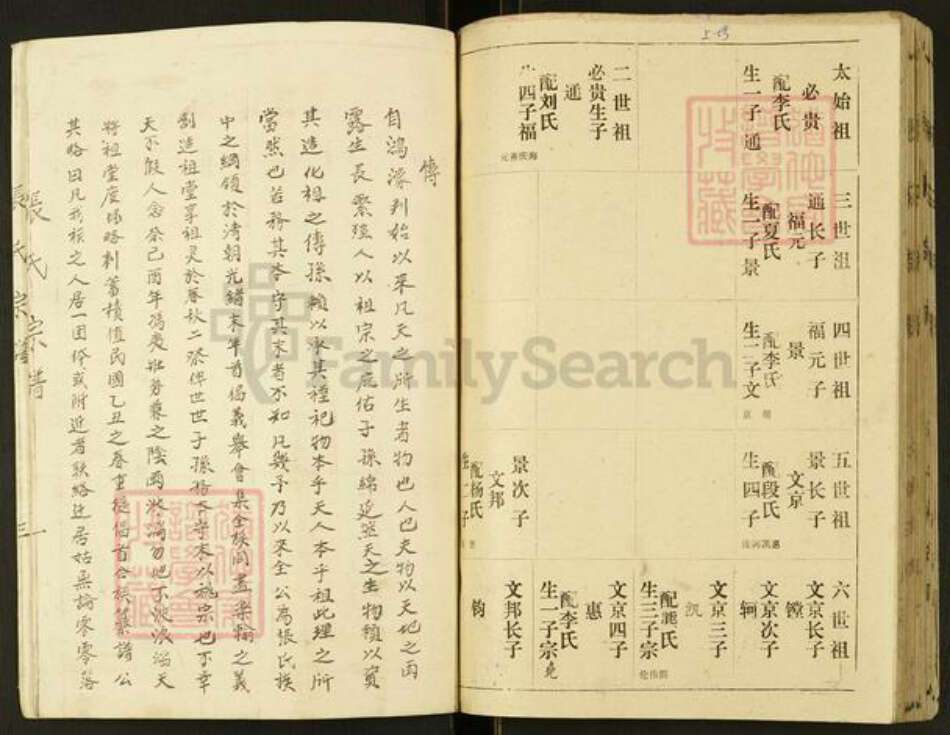 5-13
太始祖
必贵
配李氏
生一子 通
二世祖
必贵生子
通
配刘氏
四子福
元
三世祖
通长子
福元
配夏氏
生一子景
四世祖
福元子
景
配李氏
生二子文
邦
京
五世祖
景长子
文京
配段氏
生四子
景次子
文邦
配杨氏
生二子
六世祖
文京长子
镗
文京次子
轲
文京三子
凯
配龍氏
生三子宗
文京四子
惠
配李氏
生一子宗尧
文邦长子
钧
傳
自鴻濛判始以来凡天之所生者物也人巳夫物以天地之雨
露生長繁殖人以祖宗之庇佑子孫綿延然天之生物賴以資
其造化祖之傳孫賴以承其禋祀物本乎天人本乎祖此理之所
當然也若務其本守其末者不知凡幾予乃以来全公為張氏族
中之綱領於清朝光緒末年首倡義舉會集全族闔盡樂輸之義
創造祖堂享祖灵於春秋二祭俾世世子孫務本守末以祧宗也不幸
天不假人念癸己酉年馮夷班
之陰雨
天
將祖堂座場略剩蓄積值民國乙丑之春重従倡首合族纂譜公
其略曰凡我族之人居一团俗或附近者联絡迁居姑無論零零落
張氏宗譜
一
張氏宗譜
三
FamilySearch